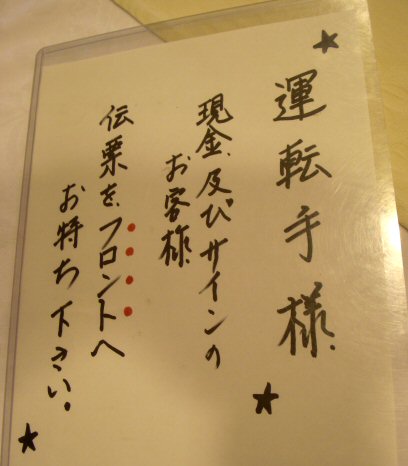 ★運転手様★
現金、及びサインの
お客様
伝票を、フロントへ
お持ち下さい。
★